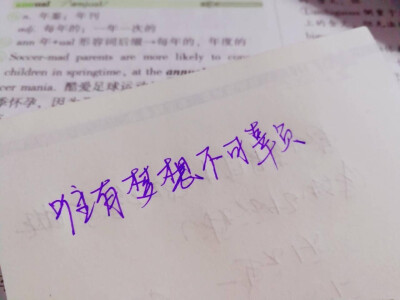 n. 年鉴；年刊
adj. 每年的；一年一次的
ann 年+ual 形容词后缀→每年的，年度的
Soccer-mad parents are more likely to
children in springtime, at the
cer mania. 酷爱足球运动
季怀孕，因为
唯有梦想不可辜负